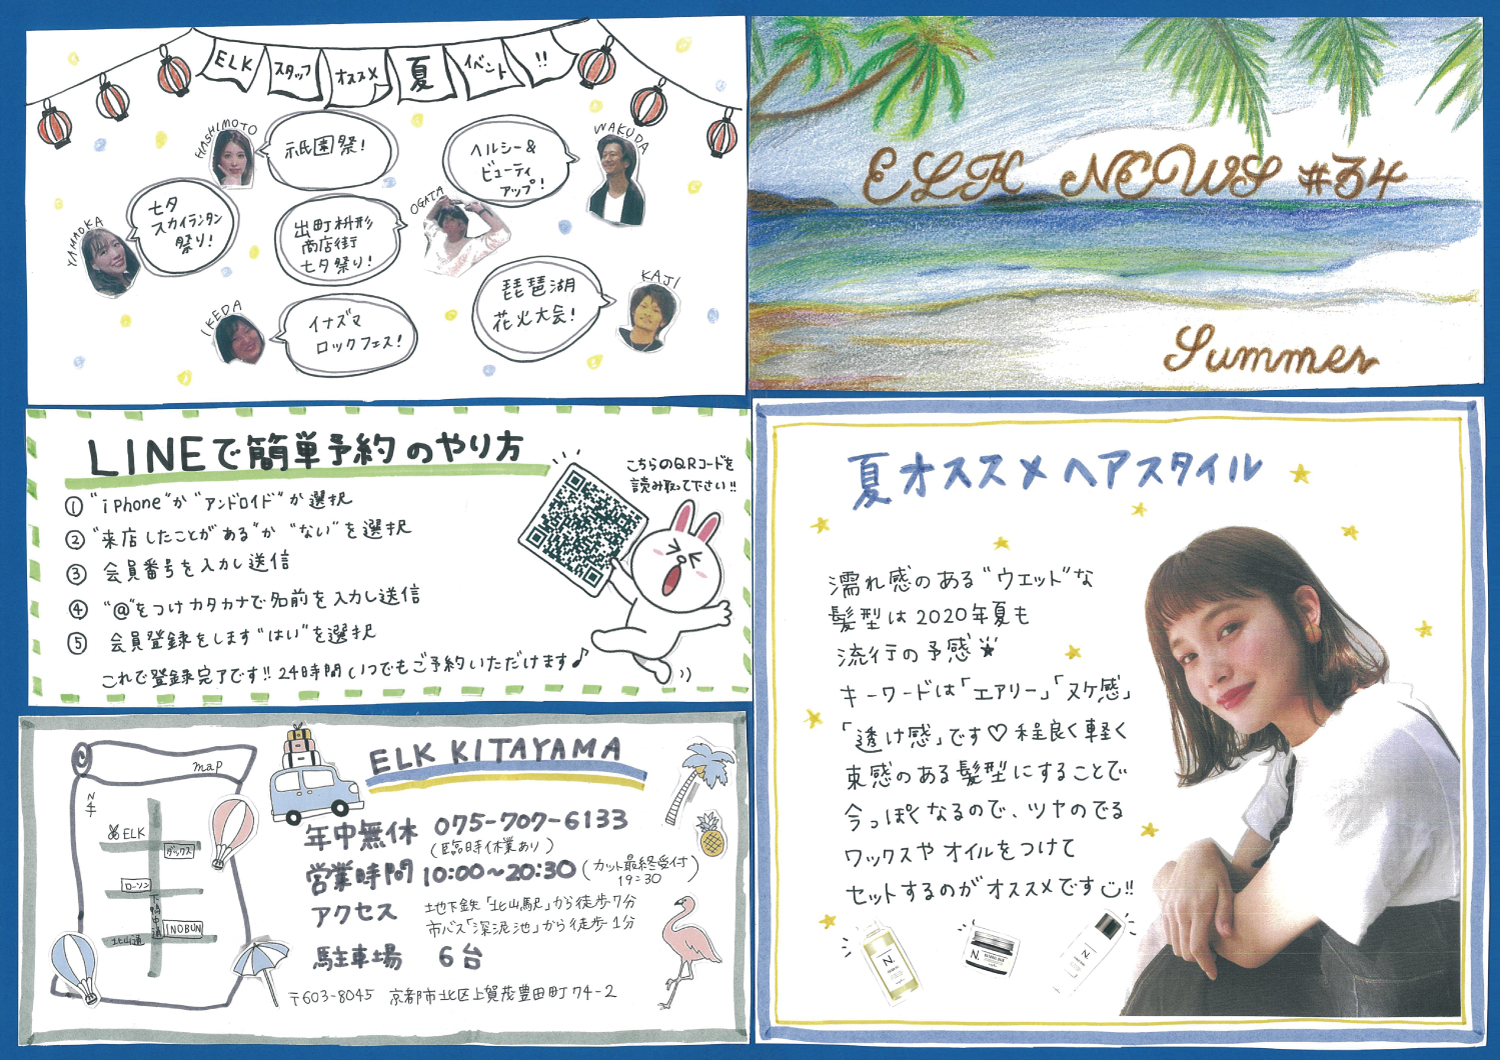 ELK スタッフ オススメ 夏 イベント !!
HASHIMOTO
祇園祭!
WAKUDA
ヘルシー&
ビューティ
アップ!
YAMAOKA
七夕
スカイランタン
祭り!
OGATA
出町枡形
商店街
七夕祭り!
IKEDA
イナズマ
ロックフェス!
KAJI
琵琶湖
花火大会!
ELK NEWS #34
Summer
LINEで簡単予約のやり方
こちらのQRコードを
読み取って下さい!!
① "iPhone"か"アンドロイド"か選択
② "来店したことがある"か "ない"を選択
③ 会員番号を入力し送信
④ "@"をつけカタカナで名前を入力し送信
⑤ 会員登録をします"はい"を選択
これで登録完了です!! 24時間いつでもご予約いただけます♪
夏オススメヘアスタイル
濡れ感のある"ウエット"な
髪型は2020年夏も
流行の予感
キーワードは「エアリー」「ヌケ感」
「透け感」です♡ 程良く軽く
束感のある髪型にすることで
今っぽくなるので、ツヤのでる
ワックスや オイルをつけて
セットするのがオススメです!!
N.
N.
N.
map
N
ELK
ダックス
ローソン
下鴨中通
INOBUN
北山通
ELK KITAYAMA
年中無休 075-707-6133
(臨時休業あり)
営業時間 10:00~20:30 (カット最終受付
19:30)
アクセス 地下鉄「北山駅」から徒歩7分
市バス「深泥池」から徒歩1分
駐車場 6台
〒603-8045 京都市北区上賀茂豊田町74-2